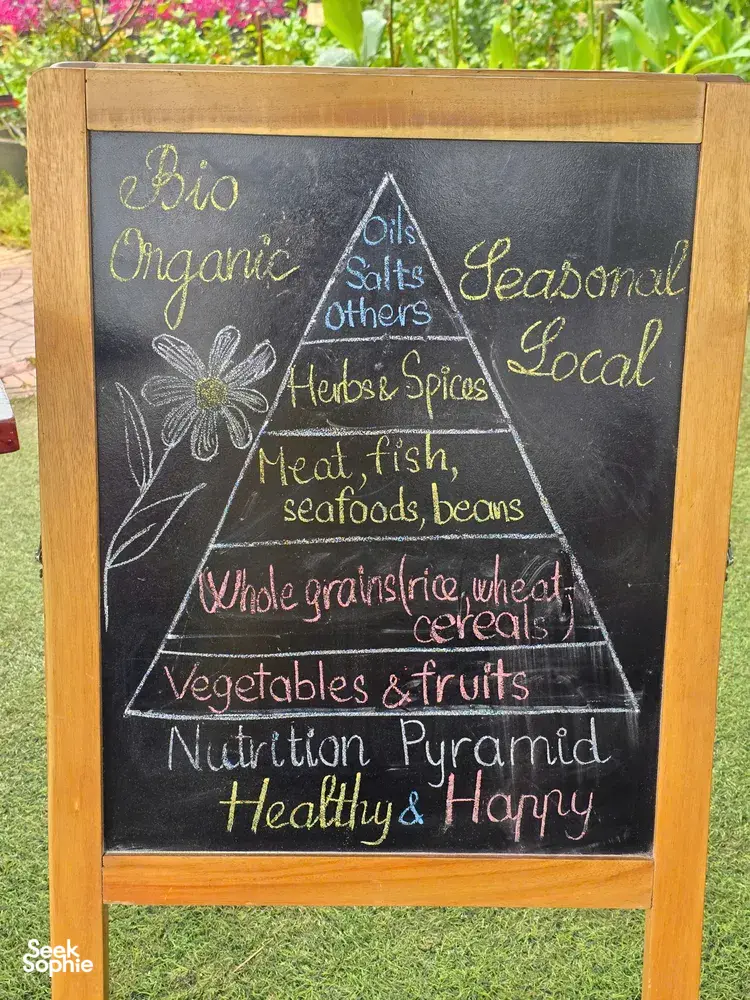 Bio
Organic
Seasonal
Local
Oils
Salts
Others
Herbs & Spices
Meat, fish,
seafoods, beans
Whole grains (rice, wheat,
cereals)
Vegetables & fruits
Nutrition Pyramid
Healthy & Happy
Seek
Sophie